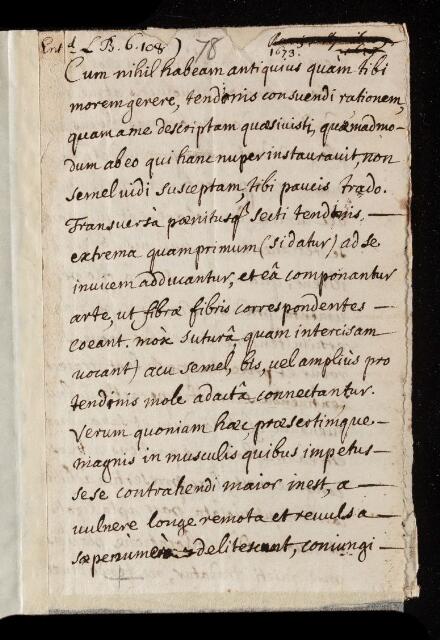 Ent.d L B. 6. 108) 78
1673.
Cum nihil habeam antiquius quàm tibi
morem gerere, tendinis consuendi rationem,
quam a me descriptam quæsivisti, quemadmo-
dum ab eo qui hanc nuper instauravit, non
semel vidi susceptam, tibi paucis trado.
Transversà pænitusq₃ secti tendinis, —
extrema quamprimum (si datur) ad se
invicem adducantur, et eâ componantur
arte, ut fibræ fibris correspondentes —
coeant. mòx suturâ, quam intercisam
vocant) acu semel, bis, vel ampliùs pro
tendinis mole adactâ connectantur.
Verum quoniam hæc, præsertimque —
magnis in musculis quibus impetus —
sese contrahendi maior inest, a —
vulnere longe remota et revulsa —
sæpenumerò delitescunt, coniungi —